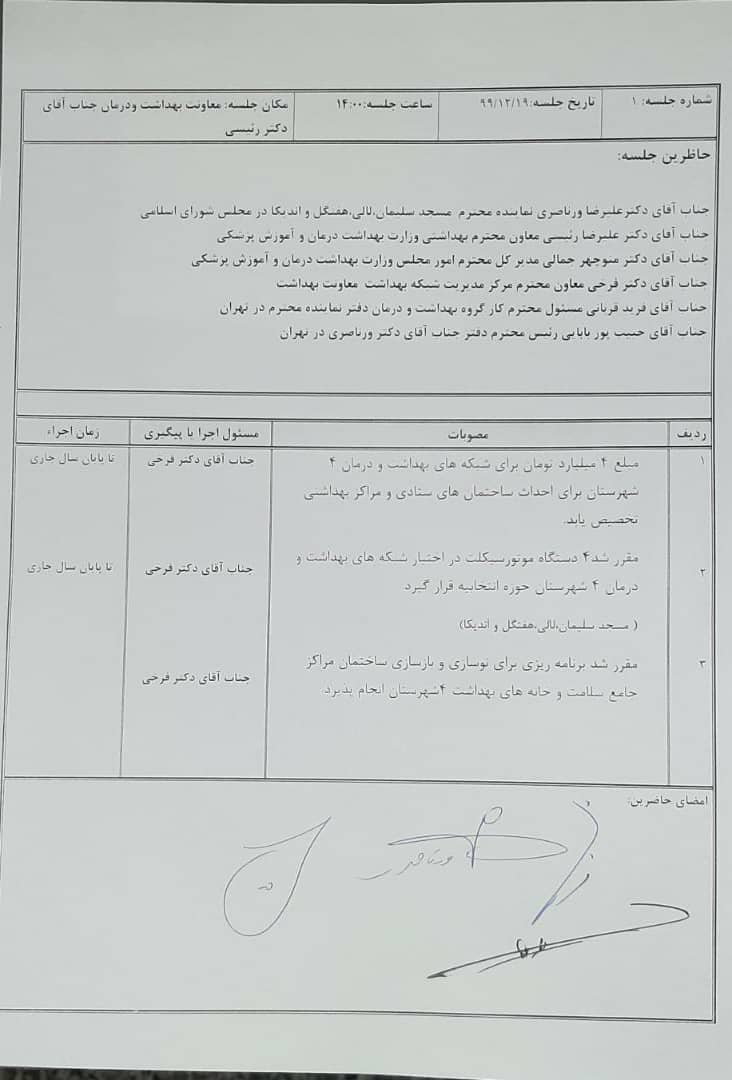 شماره جلسه: ۱
تاریخ جلسه:۹۹/۱۲/۱۹
ساعت جلسه:۱۴:۰۰
مکان جلسه: معاونت بهداشت ودرمان جناب آقای
دکتر رئیسی
حاظرین جلسه:
جناب آقای دکترعلیرضا ورناصری نماینده محترم مسجد سلیمان،لالی،هفتگل و اندیکا در مجلس شورای اسلامی
جناب آقای دکتر علیرضا رئیسی معاون محترم بهداشتی وزارت بهداشت درمان و آموزش پزشکی
جناب آقای دکتر منوچهر جمالی مدیر کل محترم امور مجلس وزارت بهداشت درمان و آموزش پزشکی
جناب آقای دکتر فرخی معاون محترم مرکز مدیریت شبکه بهداشت معاونت بهداشت
جناب آقای فرید قربانی مسئول محترم کار گروه بهداشت و درمان دفتر نماینده محترم در تهران
جناب آقای حبیب پور بابایی رئیس محترم دفتر جناب آقای دکتر ورناصری در تهران
ردیف مصوبات مسئول اجرا یا پیگیری زمان اجراء
۱ مبلغ ۴ میلیارد تومان برای شبکه های بهداشت و درمان ۴ جناب آقای دکتر فرخی تا پایان سال جاری
شهرستان برای احداث ساختمان های ستادی و مراکز بهداشتی
تخصیص یابد.
مقرر شد۴ دستگاه موتورسیکلت در اختیار شبکه های بهداشت و
۲ درمان ۴ شهرستان حوزه انتخابیه قرار گیرد. جناب آقای دکتر فرخی تا پایان سال جاری
( مسجد سلیمان،لالی،هفتگل و اندیکا)
۳ مقرر شد برنامه ریزی برای نوسازی و بازسازی ساختمان مراکز
جامع سلامت و خانه های بهداشت ۴شهرستان انجام پذیرد. جناب آقای دکتر فرخی
امضای حاضرین:
ورناصری